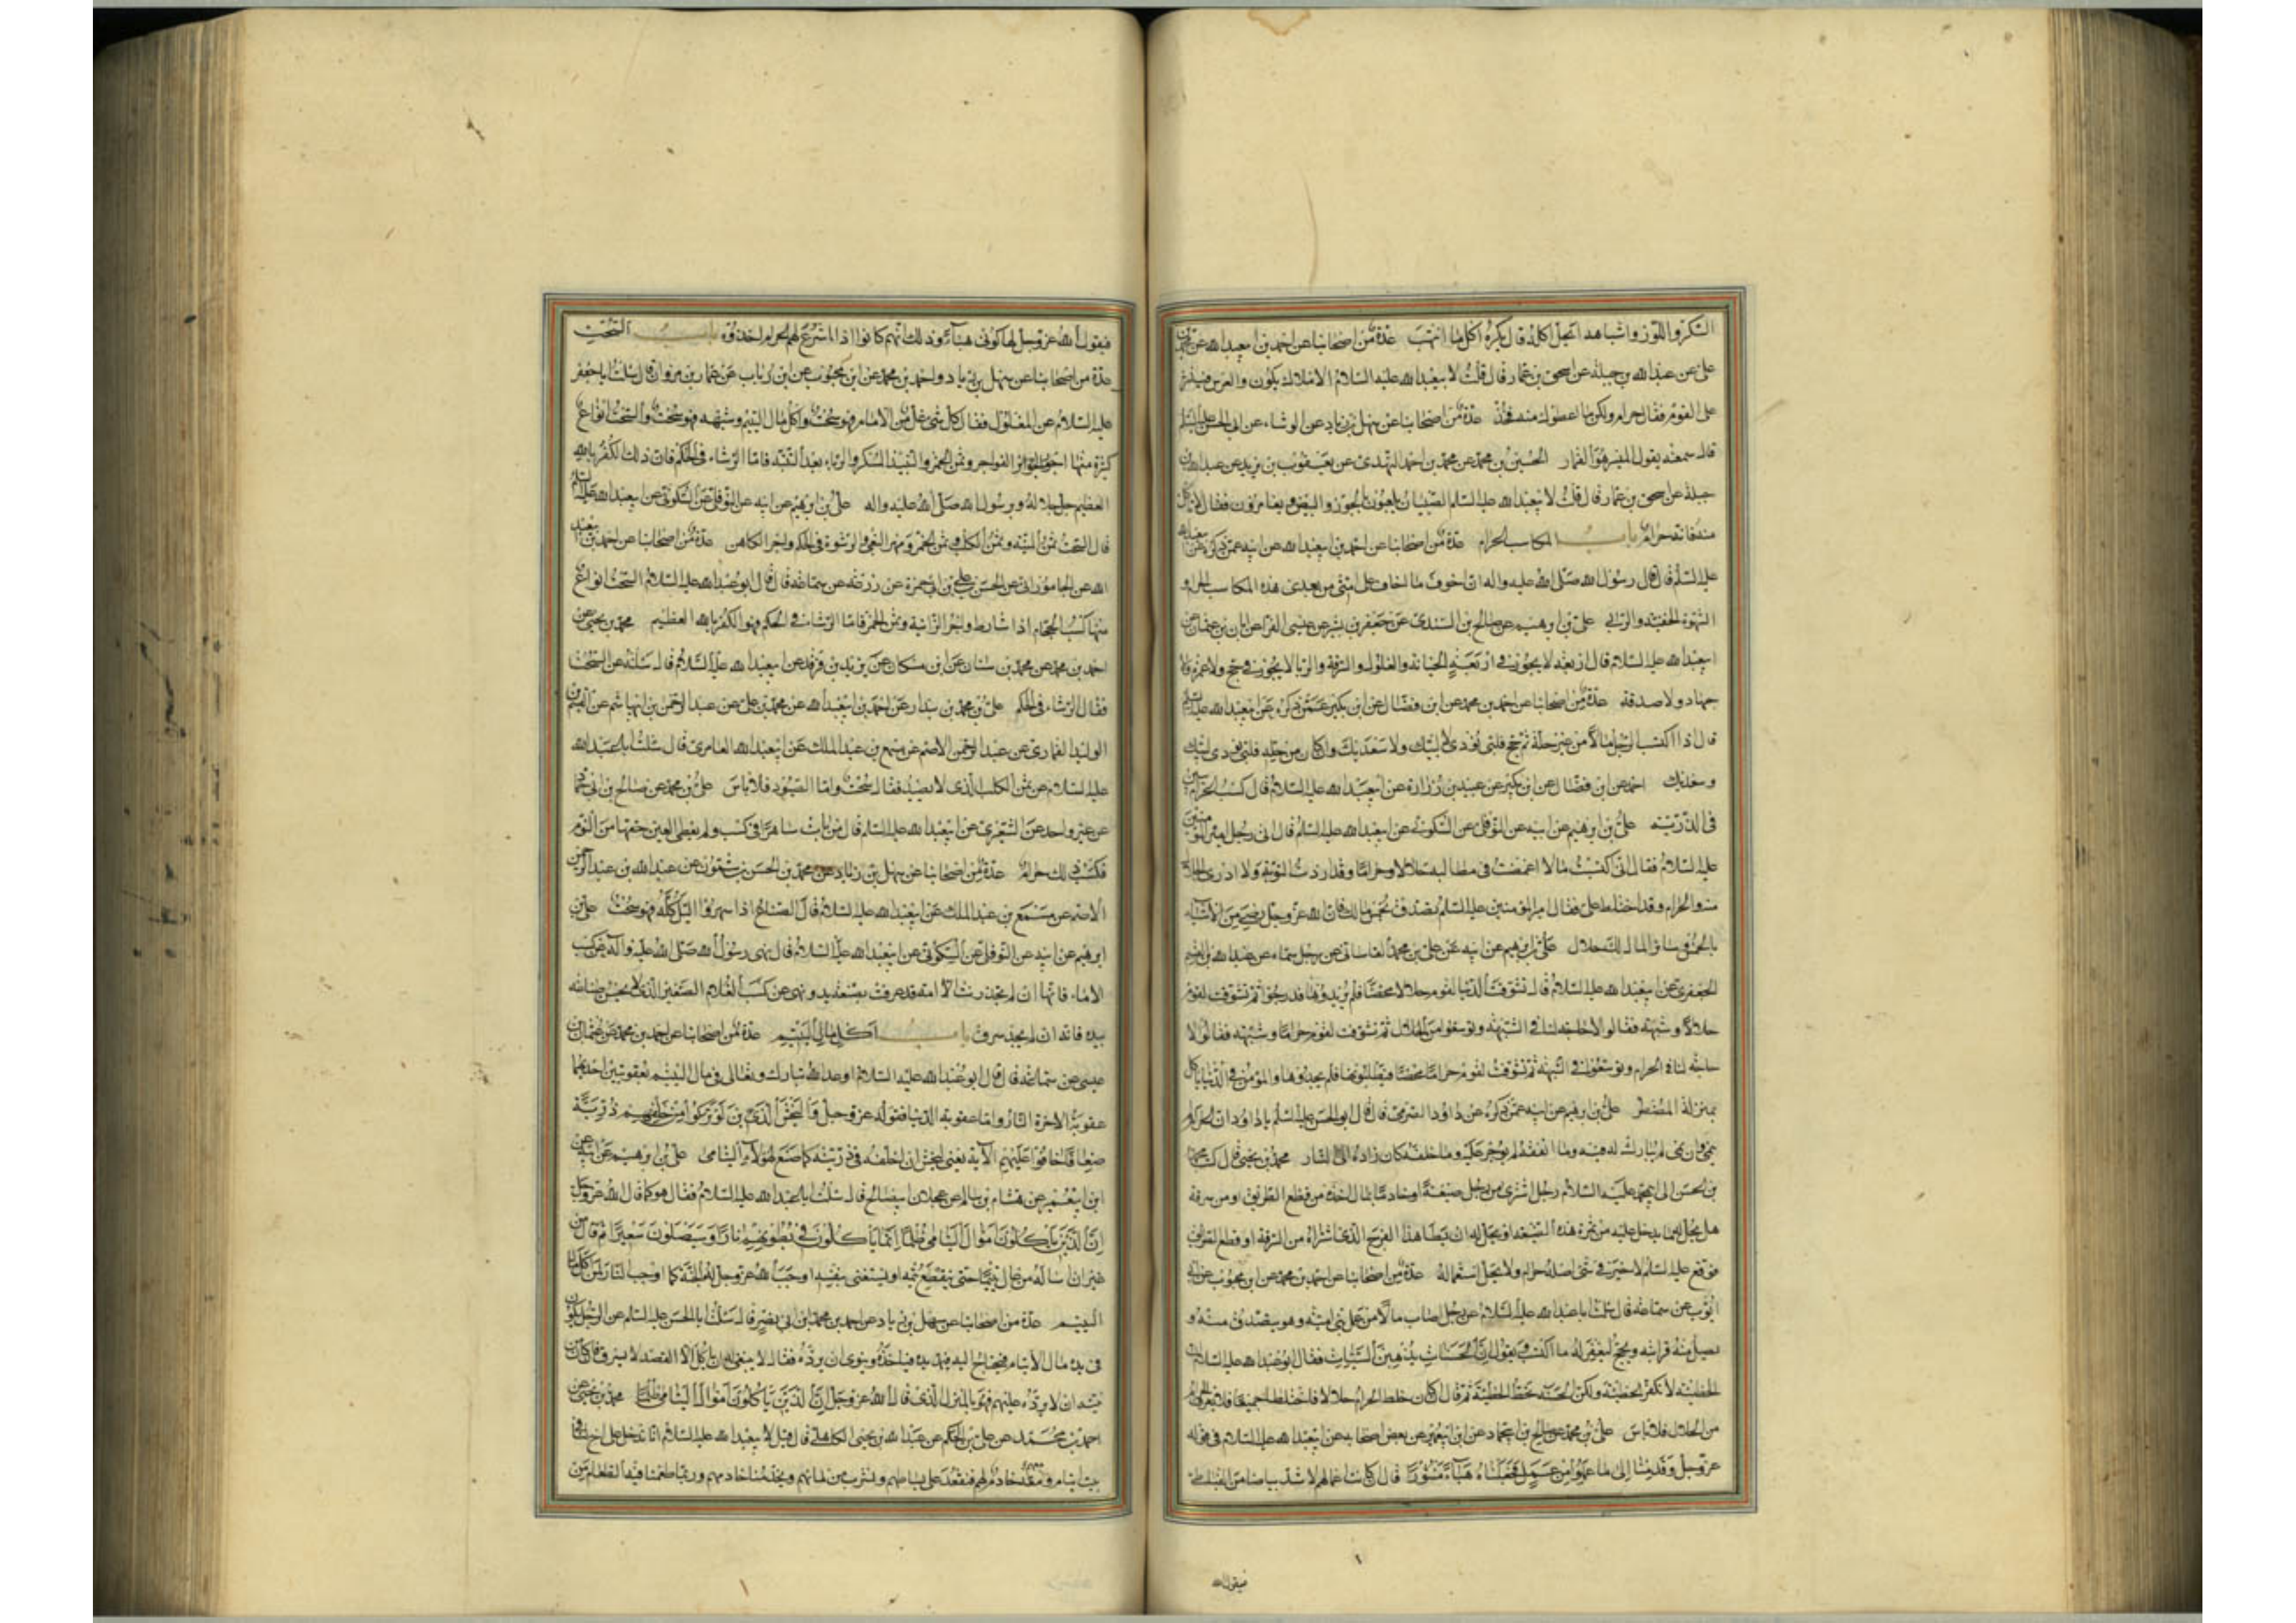 السكر واللوز واشباهه ايحل اكله قال يكره اكل ما انتهب عدة من اصحابنا عن احمد بن ابي عبد الله عن محمد بن
علي عن عبد الله بن جبلة عن اسحق بن عمار قال قلت لابي عبد الله عليه السلام الاملاك يكون والعرس فينثر
على القوم فقال حرام ولكن ما اعطوك منه فخذ عدة من اصحابنا عن سهل بن زياد عن الوشاء عن ابي الحسن عليه السلام
قال سمعته يقول الميسر هو القمار الحسين بن محمد عن محمد بن احمد النهدي عن يعقوب بن يزيد عن عبد الله بن
جبلة عن اسحق بن عمار قال قلت لابي عبد الله عليه السلم الصبيان يلعبون بالجوز والبيض ويقامرون فقال لا تاكل
منه فانه حرام باب المكاسب الحرام عدة من اصحابنا عن احمد بن ابي عبد الله عن ابيه عمن ذكره عن ابي عبد الله
عليه السلم قال قال رسول الله صلى الله عليه واله ان اخوف ما اخاف على امتي من بعدي هذه المكاسب الحرام و
الشهوة الخفية والربا علي بن ابرهيم عن صالح بن السندي عن جعفر بن بشير عن عيسى الفراء عن ابان بن عثمان عن
ابي عبد الله عليه السلام قال اربعة لا يجوز في اربعة الخيانة والغلول والسرقة والربا لا يجوز في حج ولا عمرة ولا
جهاد ولا صدقة عدة من اصحابنا عن احمد بن محمد عن ابن فضال عن ابن بكير عمن ذكره عن ابي عبد الله عليه السلم
قال اذا اكتسب الرجل مالا من غير حله ثم حج فلبى نودي لا لبيك ولا سعديك وان كان من حله فلبى نودي لبيك
وسعديك احمد عن ابن فضال عن ابن بكير عن عبيد بن زرارة عن ابي عبد الله عليه السلام قال كسب الحرام يبين
في الذرية علي بن ابرهيم عن ابيه عن النوفلي عن السكوني عن ابي عبد الله عليه السلام قال اتى رجل امير المؤمنين
عليه السلام فقال اني كسبت مالا اغمضت في مطالبه حلالا وحراما وقد اردت التوبة ولا ادري الحلال
منه والحرام وقد اختلط علي فقال امير المؤمنين عليه السلم تصدق بخمس مالك فان الله عز وجل رضي من الاشياء
بالخمس وسائر المال لك حلال علي بن ابرهيم عن ابيه عن علي بن محمد القاساني عن رجل سماه عن عبد الله بن القسم
الجعفري عن ابي عبد الله عليه السلام قال تشوقت الدنيا لقوم حلالا محضا فلم يريدوها فدرجوا ثم تشوقت لقوم
حلالا وشبهة فقالوا لا حاجة لنا في الشبهة وتوسعوا من الحلال ثم تشوقت لقوم حراما وشبهة فقالوا لا
حاجة لنا في الحرام وتوسعوا في الشبهة ثم تشوقت لقوم حراما محضا فيطلبونها فلم يجدوها والمؤمن في الدنيا ياكل
بمنزلة المضطر علي بن ابرهيم عن ابيه عمن ذكره عن داود الصرمي قال قال ابو الحسن عليه السلم يا داود ان الحرام
لا ينمي وان نمى لم يبارك له فيه وما انفقه لم يوجر عليه وما خلفه كان زاده الى النار محمد بن يحيى قال كتب محمد
بن الحسن الى ابي محمد عليه السلام رجل اشترى من رجل ضيعة او خادما بمال اخذه من قطع الطريق او من سرقة
هل يحل له ما يدخل عليه من ثمرة هذه الضيعة او يحل له ان يطا هذا الفرج الذي اشتراه من السرقة او قطع الطريق
فوقع عليه السلم لا خير في شي اصله حرام ولا يحل استعماله عدة من اصحابنا عن احمد بن محمد عن ابن محبوب عن ابي
ايوب عن سماعة قال سالت ابا عبد الله عليه السلام عن رجل اصاب مالا من عمل بني امية وهو يتصدق منه و
يصل منه قرابته ويحج ليغفر له ما اكتسب ويقول ان الحسنات يذهبن السيئات فقال ابو عبد الله عليه السلام ان
الخطيئة لا تكفر الخطيئة ولكن الحسنة تحط الخطيئة ثم قال ان كان خلط الحرام حلالا فاختلط جميعا فلا يعرف الحرام
من الحلال فلا باس علي بن محمد عن صالح بن ابي حماد عن ابن ابي عمير عن بعض اصحابه عن ابي عبد الله عليه السلام في قوله
عز وجل وقدمنا الى ما عملوا من عمل فجعلناه هباء منثورا قال ان كانت اعمالهم لاشد بياضا من القباطي
فيقول الله
فيقول الله عز وجل لها كوني هباء وذلك انهم كانوا اذا شرع لهم الحرام اخذوه باب السحت
عدة من اصحابنا عن سهل بن زياد واحمد بن محمد عن ابن محبوب عن ابن رئاب عن عمار بن مروان قال سالت ابا جعفر
عليه السلام عن الغلول فقال كل شي غل من الامام فهو سحت واكل مال اليتيم وشبهه فهو سحت والسحت انواع
كثيرة منها اجور الفواجر وثمن الخمر والنبيذ المسكر والربا بعد البينة فاما الرشاء في الحكم فان ذلك الكفر بالله
العظيم جل جلاله وبرسوله صلى الله عليه واله علي بن ابرهيم عن ابيه عن النوفلي عن السكوني عن ابي عبد الله عليه السلم
قال السحت ثمن الميتة وثمن الكلب وثمن الخمر ومهر البغي والرشوة في الحكم واجر الكاهن عدة من اصحابنا عن احمد بن ابي عبد
الله عن الجاموراني عن الحسن بن علي بن ابي حمزة عن زرعة عن سماعة قال قال ابو عبد الله عليه السلام السحت انواع
منها كسب الحجام اذا شارط واجر الزانية وثمن الخمر فاما الرشا في الحكم فهو الكفر بالله العظيم محمد بن يحيى عن
احمد بن محمد عن محمد بن سنان عن ابن مسكان عن يزيد بن فرقد عن ابي عبد الله عليه السلام قال سالته عن السحت
فقال الرشاء في الحكم علي بن محمد بن بندار عن احمد بن ابي عبد الله عن محمد بن علي عن عبد الرحمن بن ابي هاشم عن القسم بن
الوليد العماري عن عبد الرحمن الاصم عن مسمع بن عبد الملك عن ابي عبد الله العامري قال سالت ابا عبد الله
عليه السلام عن ثمن الكلب الذي لا يصيد فقال سحت واما الصيود فلا باس علي بن محمد عن صالح بن ابي حماد
عن غير واحد عن الشعيري عن ابي عبد الله عليه السلم قال من بات ساهرا في كسب ولم يعط العين حقها من النوم
فكسبه ذلك حرام عدة من اصحابنا عن سهل بن زياد عن محمد بن الحسن بن شمون عن عبد الله بن عبد الرحمن
الاصم عن مسمع بن عبد الملك عن ابي عبد الله عليه السلام قال الصناع اذا سهروا الليل كله فهو سحت علي بن
ابرهيم عن ابيه عن النوفلي عن السكوني عن ابي عبد الله عليه السلام قال نهى رسول الله صلى الله عليه واله عن كسب
الاماء فانها ان لم تجد زنت الا امة قد عرفت بصنعة يد ونهى عن كسب الغلام الصغير الذي لا يحسن صناعة
بيده فانه ان لم يجد سرق باب اكل مال اليتيم عدة من اصحابنا عن احمد بن محمد عن عثمان بن
عيسى عن سماعة قال قال ابو عبد الله عليه السلام اوعد الله تبارك وتعالى في مال اليتيم بعقوبتين احديهما
عقوبة الاخرة النار واما عقوبة الدنيا فقوله عز وجل وليخش الذين لو تركوا من خلفهم ذرية
ضعافا خافوا عليهم الاية يعني ليخش ان اخلفه في ذريته كما صنع بهؤلاء اليتامى علي بن ابرهيم عن ابيه عن
ابن ابي عمير عن هشام بن سالم عن عجلان ابي صالح قال سالت ابا عبد الله عليه السلام فقال هو كما قال الله عز وجل
ان الذين ياكلون اموال اليتامى ظلما انما ياكلون في بطونهم نارا وسيصلون سعيرا ثم قال من
غير ان اساله من عال يتيما حتى ينقطع يتمه او يستغني بنفسه اوجب الله عز وجل له الجنة كما اوجب النار لمن اكل مال
اليتيم عدة من اصحابنا عن سهل بن زياد عن احمد بن محمد بن ابي نصر قال سالت ابا الحسن عليه السلم عن الرجل يكون
في يده مال لايتام فيحتاج اليه فيمد يده فياخذه وينوي ان يرده فقال لا ينبغي له ان ياكل الا القصد لا يسرف فان كان من
نيته ان لا يرده عليهم فهو بالمنزل الذي قال الله عز وجل ان الذين ياكلون اموال اليتامى ظلما محمد بن يحيى عن
احمد بن محمد عن علي بن الحكم عن عبد الله بن يحيى الكاهلي قال قيل لابي عبد الله عليه السلام انا ندخل على اخ لنا في
بيت ايتام ومعه خادم لهم فنقعد على بساطهم ونشرب من مائهم ويخدمنا خادمهم وربما طعمنا فيه الطعام من